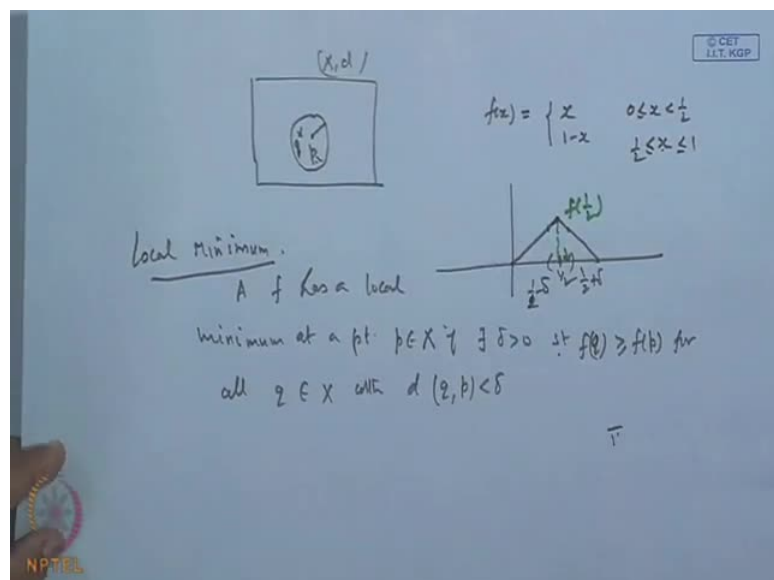 © CET
I.I.T. KGP
(X, d)
f(x) = { x 0 ≤ x < 1/2
1-x 1/2 ≤ x ≤ 1
f(1/2)
Local Minimum.
1/2-δ 1/2 1/2+δ
A f has a local
minimum at a pt. p ∈ X if ∃ δ>0 st f(q) ≥ f(p) for
all q ∈ X with d (q, p) < δ
NPTEL